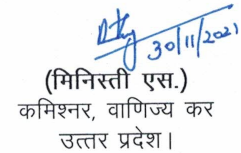 30/11/2021
(मिनिस्ती एस.)
कमिश्नर, वाणिज्य कर
उत्तर प्रदेश।